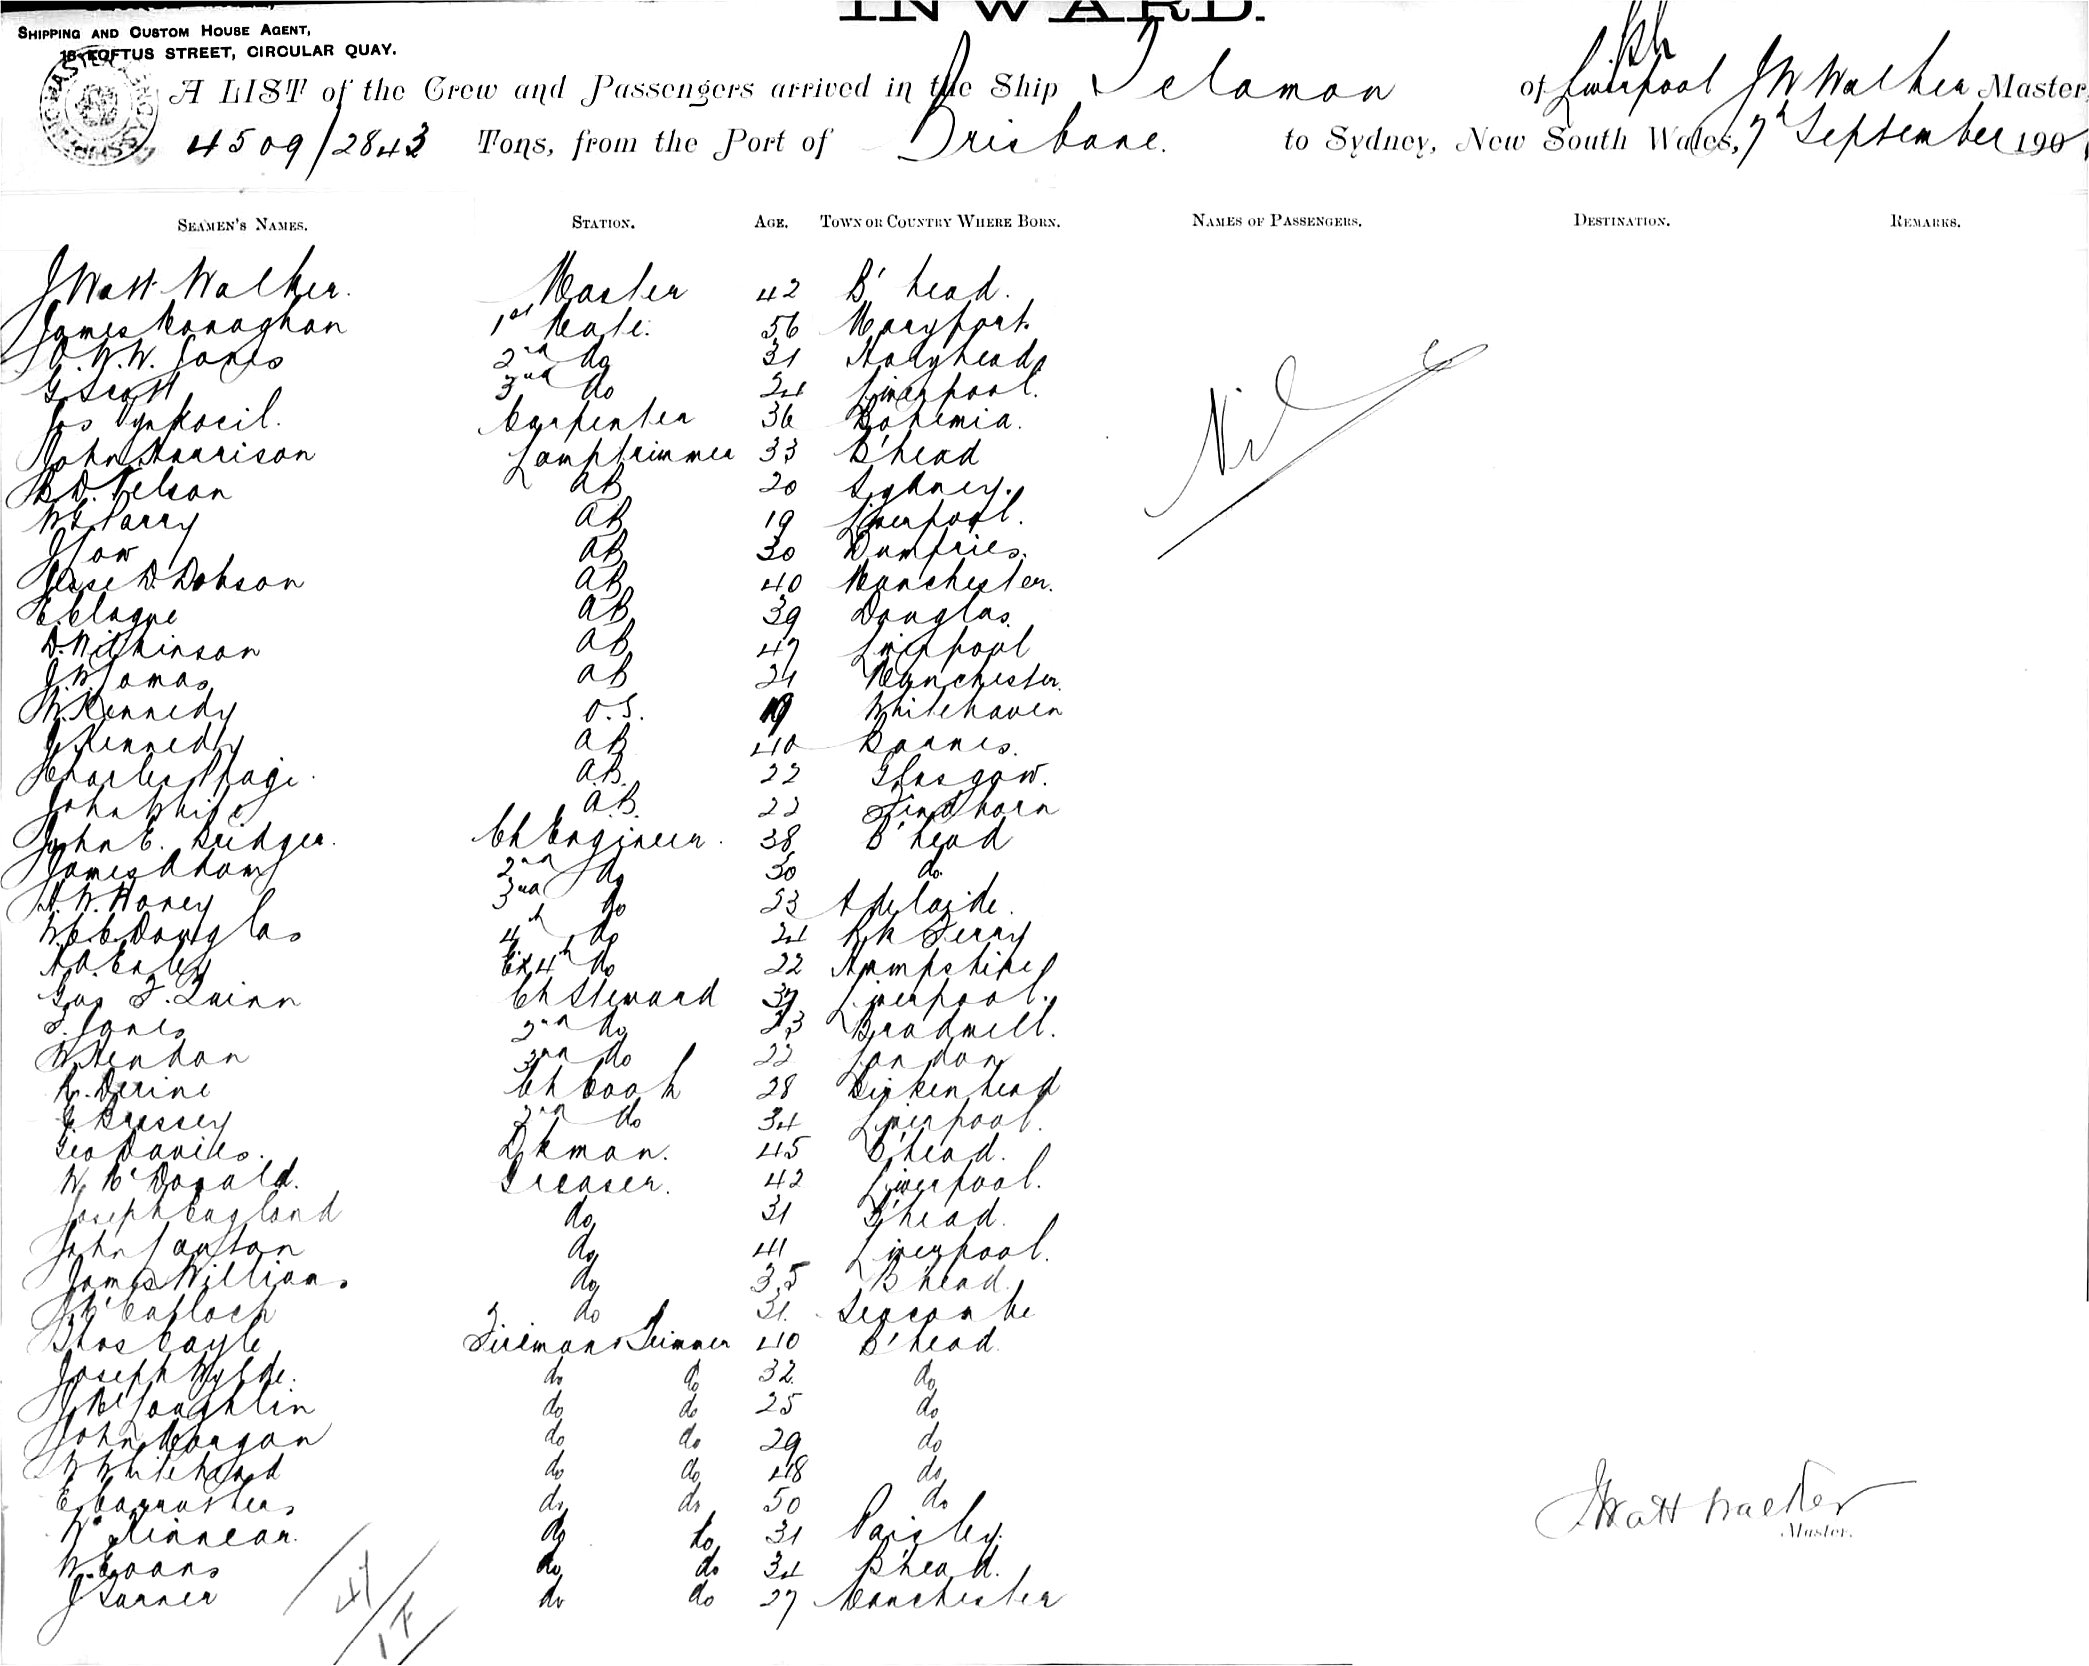 INWARD.
SHIPPING AND CUSTOM HOUSE AGENT,
16 LOFTUS STREET, CIRCULAR QUAY.
A LIST of the Crew and Passengers arrived in the Ship Telamon of Liverpool J W Walker Master,
4509/2843 Tons, from the Port of Brisbane. to Sydney, New South Wales, 7th September 190
SEAMEN'S NAMES. STATION. AGE. TOWN OR COUNTRY WHERE BORN. NAMES OF PASSENGERS. DESTINATION. REMARKS.
J Watt Walker. Master 42 B'head.
James Monaghan 1st Mate. 56 Maryport.
O. W. W. Jones 2nd do 31 Holyhead
G Scott 3rd do 24 Liverpool.
Jos Vyskocil. Carpenter 36 Bohemia.
John Harrison Lamptrimmer 33 B'head
B D. Nelson AB 20 Sydney.
W G Parry AB 19 Liverpool.
J Low AB 30 Dumfries.
Jesse D. Dobson AB 40 Manchester.
E. Clague AB 39 Douglas.
D. Wilkinson AB 47 Liverpool
J. W Lomas AB 24 Manchester.
W. Kennedy O.S. 19 Whitehaven
J Kennedy AB 40 Barnes.
Charles Phaije. A.B. 22 Glasgow.
John White A.B. 22 Findhorn
John E. Bridger. Ch Engineer. 38 B'head
James Adam 2nd do 30 do.
A. W. Honey 3rd do 23 Adelaide.
W. C. C. Douglas 4th do 24 Rk Ferry
A. A. Exley Ex 4th do 22 Hampshire
Geo F. Quinn Ch Steward 37 Liverpool.
T. Jones 2nd do 23 Bradwell.
W Hendon 3rd do 22 London
R. Devine Ch Cook 28 Birkenhead
E. Bressey 2nd do 34 Liverpool.
Geo Davies. Dkman. 45 B'head.
W McDonald. Greaser. 42 Liverpool.
Joseph England do 31 B'head.
John Layton do 41 Liverpool.
James Williams do 35 B'head.
J McCulloch do 31. Seacombe
Thos Coyle Fireman & Trimmer 40 B'head.
Joseph Wylde. do do 32. do
J McLoughlin do do 25 do
John Morgan do do 29 do
W Whitehead do do 48 do
E. Carruthers do do 50 do
W Kinnear. do do 31 Paisley.
W. Evans do do 34 B'head.
J Turner do do 27 Manchester
Nil
J Watt Walker
Master.